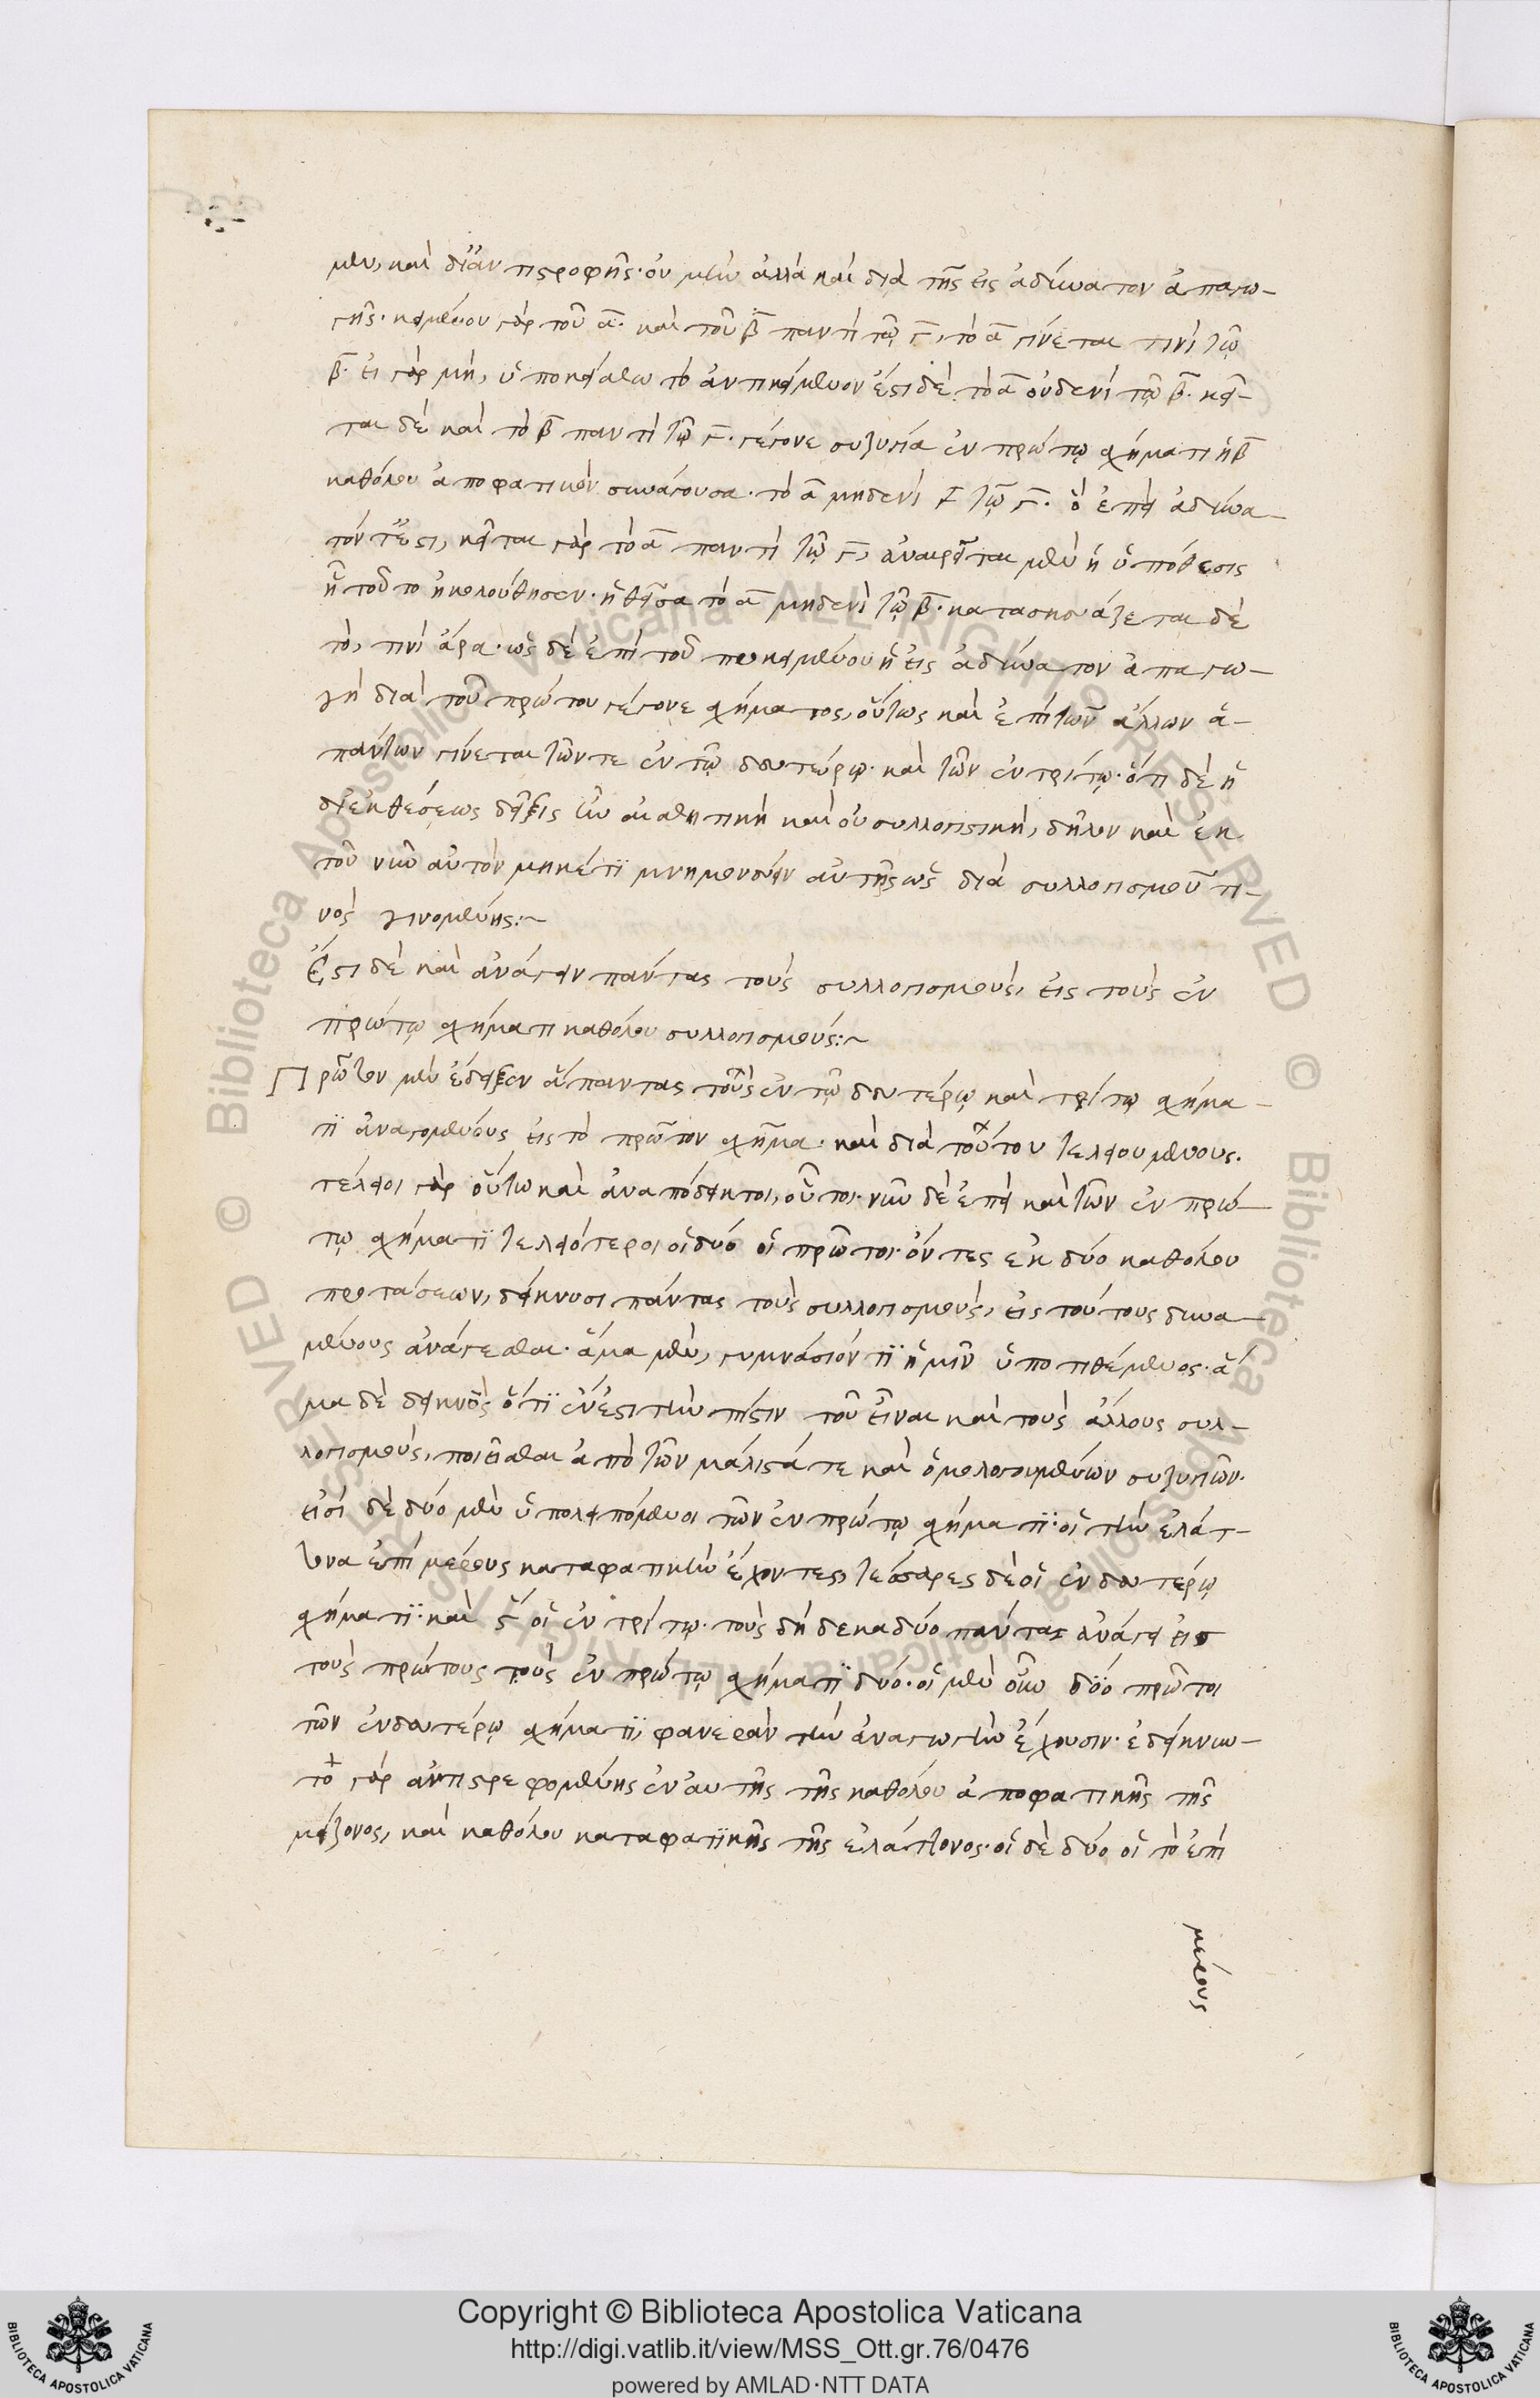 μεν, καὶ δι' ἀντιστροφῆς· οὐ μὴν ἀλλὰ καὶ διὰ τῆς εἰς ἀδύνατον ἀπαγω-
γῆς· κειμένου γὰρ τοῦ α· καὶ τοῦ β παντὶ τῷ γ, τὸ α γίνεται τινὶ τῷ
β· εἰ γὰρ μὴ, ὑποκείσθω τὸ ἀντικείμενον ἔστι δὲ τὸ α οὐδενὶ τῷ β· κεῖ-
ται δὲ καὶ τὸ β παντὶ τῷ γ· γέγονε συζυγία ἐν πρώτῳ σχήματι ἡ β
καθόλου ἀποφατικὸν συνάγουσα· τὸ α μηδενὶ τῷ γ· ὃ ἐπεὶ ἀδύνα-
τόν ἐστι, κεῖται γὰρ τὸ α παντὶ τῷ γ, ἀναιρεῖται μὲν ἡ ὑπόθεσις
ᾗ τοῦτο ἠκολούθησεν· ἡ θεῖσα τὸ α μηδενὶ τῷ β· κατασκευάζεται δὲ
τὸ, τινὶ ἄρα· ὡς δὲ ἐπὶ τοῦ προκειμένου ἡ εἰς ἀδύνατον ἀπαγω-
γὴ διὰ τοῦ πρώτου γέγονε σχήματος, οὕτως καὶ ἐπὶ τῶν ἄλλων ἁ-
πάντων γίνεται τῶν τε ἐν τῷ δευτέρῳ· καὶ τῶν ἐν τρίτῳ· ὅτι δὲ ἡ
δι' ἐκθέσεως δεῖξις ἦν αἰσθητικὴ καὶ οὐ συλλογιστικὴ, δῆλον καὶ ἐκ
τοῦ νῦν αὐτὸν μηκέτι μνημονεύειν αὐτῆς ὡς διὰ συλλογισμοῦ τι-
νὸς γινομένης:~
Ἔστι δὲ καὶ ἀνάγειν πάντας τοὺς συλλογισμοὺς, εἰς τοὺς ἐν
πρώτῳ σχήματι καθόλου συλλογισμούς:~
Πρῶτον μὲν ἔδειξεν ἅπαντας τοὺς ἐν τῷ δευτέρῳ καὶ τρίτῳ σχήμα-
τι ἀναγομένους εἰς τὸ πρῶτον σχῆμα· καὶ διὰ τούτου τελειουμένους.
τέλειοι γὰρ οὕτω καὶ ἀναπόδεικτοι, οὗτοι· νῦν δὲ ἐπεὶ καὶ τῶν ἐν πρώ-
τῳ σχήματι τελειότεροι οἱ δύο οἱ πρῶτοι· ὄντες ἐκ δύο καθόλου
προτάσεων, δείκνυσι πάντας τοὺς συλλογισμοὺς, εἰς τούτους δυνα-
μένους ἀνάγεσθαι· ἅμα μὲν, γυμνάσιόν τι ἡμῖν ὑποτιθέμενος· ἅ-
μα δὲ δεικνὺς ὅτι ἐνέστι τὴν πίστιν τοῦ εἶναι καὶ τοὺς ἄλλους συλ-
λογισμοὺς, ποιεῖσθαι ἀπὸ τῶν μάλιστά τε καὶ ὁμολογουμένων συζυγιῶν·
εἰσὶ δὲ δύο μὲν ὑπολειπόμενοι τῶν ἐν πρώτῳ σχήματι· οἱ τὴν ἐλάτ-
τονα ἐπὶ μέρους καταφατικὴν ἔχοντες, τέσσαρες δὲ οἱ ἐν δευτέρῳ
σχήματι· καὶ ϛ οἱ ἐν τρίτῳ· τοὺς δὴ δεκαδύο πάντας ἀνάγει εἰς
τοὺς πρώτους τοὺς ἐν πρώτῳ σχήματι δύο· οἱ μὲν οὖν δύο πρῶτοι
τῶν ἐν δευτέρῳ σχήματι, φανερὰν τὴν ἀναγωγὴν ἔχουσιν· ἐδείκνυν-
το γὰρ ἀντιστρεφομένης ἐν αυτῆς τῆς καθόλου ἀποφατικῆς τῆς
μείζονος, καὶ καθόλου καταφατικῆς τῆς ἐλάττονος· οἱ δὲ δύο οἱ τὸ ἐπὶ
μέρους
Copyright © Biblioteca Apostolica Vaticana
http://digi.vatlib.it/view/MSS_Ott.gr.76/0476
powered by AMLAD·NTT DATA